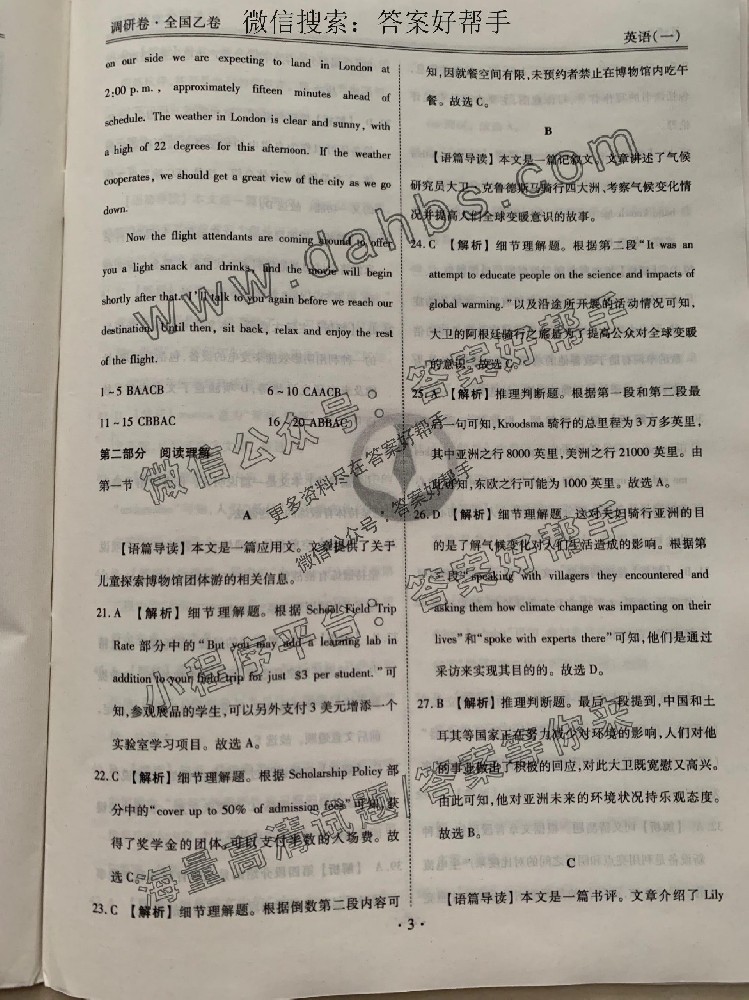 调研卷·全国乙卷
微信搜索：答案好帮手
英语(一)
on our side we are expecting to land in London at
2:00 p. m. , approximately fifteen minutes ahead of
schedule. The weather in London is clear and sunny, with
a high of 22 degrees for this afternoon. If the weather
cooperates, we should get a great view of the city as we go
down.
Now the flight attendants are coming around to offer
you a light snack and drinks, and the movie will begin
shortly after that. I'll talk to you again before we reach our
destination. Until then, sit back, relax and enjoy the rest
of the flight.
1~5 BAACB 6~10 CAACB
11~15 CBBAC 16~20 ABBAC
第二部分 阅读理解
第一节
A
【语篇导读】本文是一篇应用文。文章提供了关于
儿童探索博物馆团体游的相关信息。
21. A 【解析】细节理解题。根据 School Field Trip
Rate 部分中的“But you may add a learning lab in
addition to your field trip for just $3 per student.”可
知,参观展品的学生,可以另外支付 3 美元增添一个
实验室学习项目。故选 A。
22. C 【解析】细节理解题。根据 Scholarship Policy 部
分中的“cover up to 50% of admission fees”可知,获
得了奖学金的团体,可以支付半数的入场费。故
选 C。
23. C 【解析】细节理解题。根据倒数第二段内容可
知,因就餐空间有限,未预约者禁止在博物馆内吃午
餐。故选 C。
B
【语篇导读】本文是一篇记叙文。文章讲述了气候
研究员大卫·克鲁德斯马骑行四大洲,考察气候变化情
况并提高人们全球变暖意识的故事。
24. C 【解析】细节理解题。根据第二段“It was an
attempt to educate people on the science and impacts of
global warming.”以及沿途所开展的活动情况可知,
大卫的阿根廷骑行之旅是为了提高公众对全球变暖
的意识。故选 C。
25. A 【解析】推理判断题。根据第一段和第二段最
后一句可知, Kroodsma 骑行的总里程为 3 万多英里,
其中亚洲之行 8000 英里,美洲之行 21000 英里。由
此可知,东欧之行可能为 1000 英里。故选 A。
26. D 【解析】细节理解题。这对夫妇骑行亚洲的目
的是了解气候变化对人们生活造成的影响。根据第
三段“speaking with villagers they encountered and
asking them how climate change was impacting on their
lives”和“spoke with experts there”可知,他们是通过
采访来实现其目的的。故选 D。
27. B 【解析】推理判断题。最后一段提到,中国和土
耳其等国家正在努力减少对环境的影响,人们对他
的事业做出了积极的回应,对此大卫既宽慰又高兴。
由此可知,他对亚洲未来的环境状况持乐观态度。
故选 B。
C
【语篇导读】本文是一篇书评。文章介绍了 Lily
·3·
www.dahbs.com
微信公众号：答案好帮手
更多资料尽在答案好帮手
微信公众号：答案好帮手
小程序平台：答案好帮手
海量高清试题/答案等你来